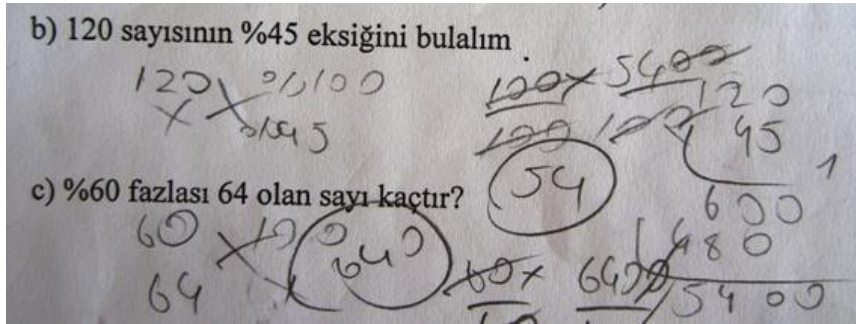 b) 120 sayısının %45 eksiğini bulalım
120 %100
x %45
100x 5400
100 100
54
120
45
600
480
5400
c) %60 fazlası 64 olan sayı kaçtır?
60 100
64 x
640
60x 6400